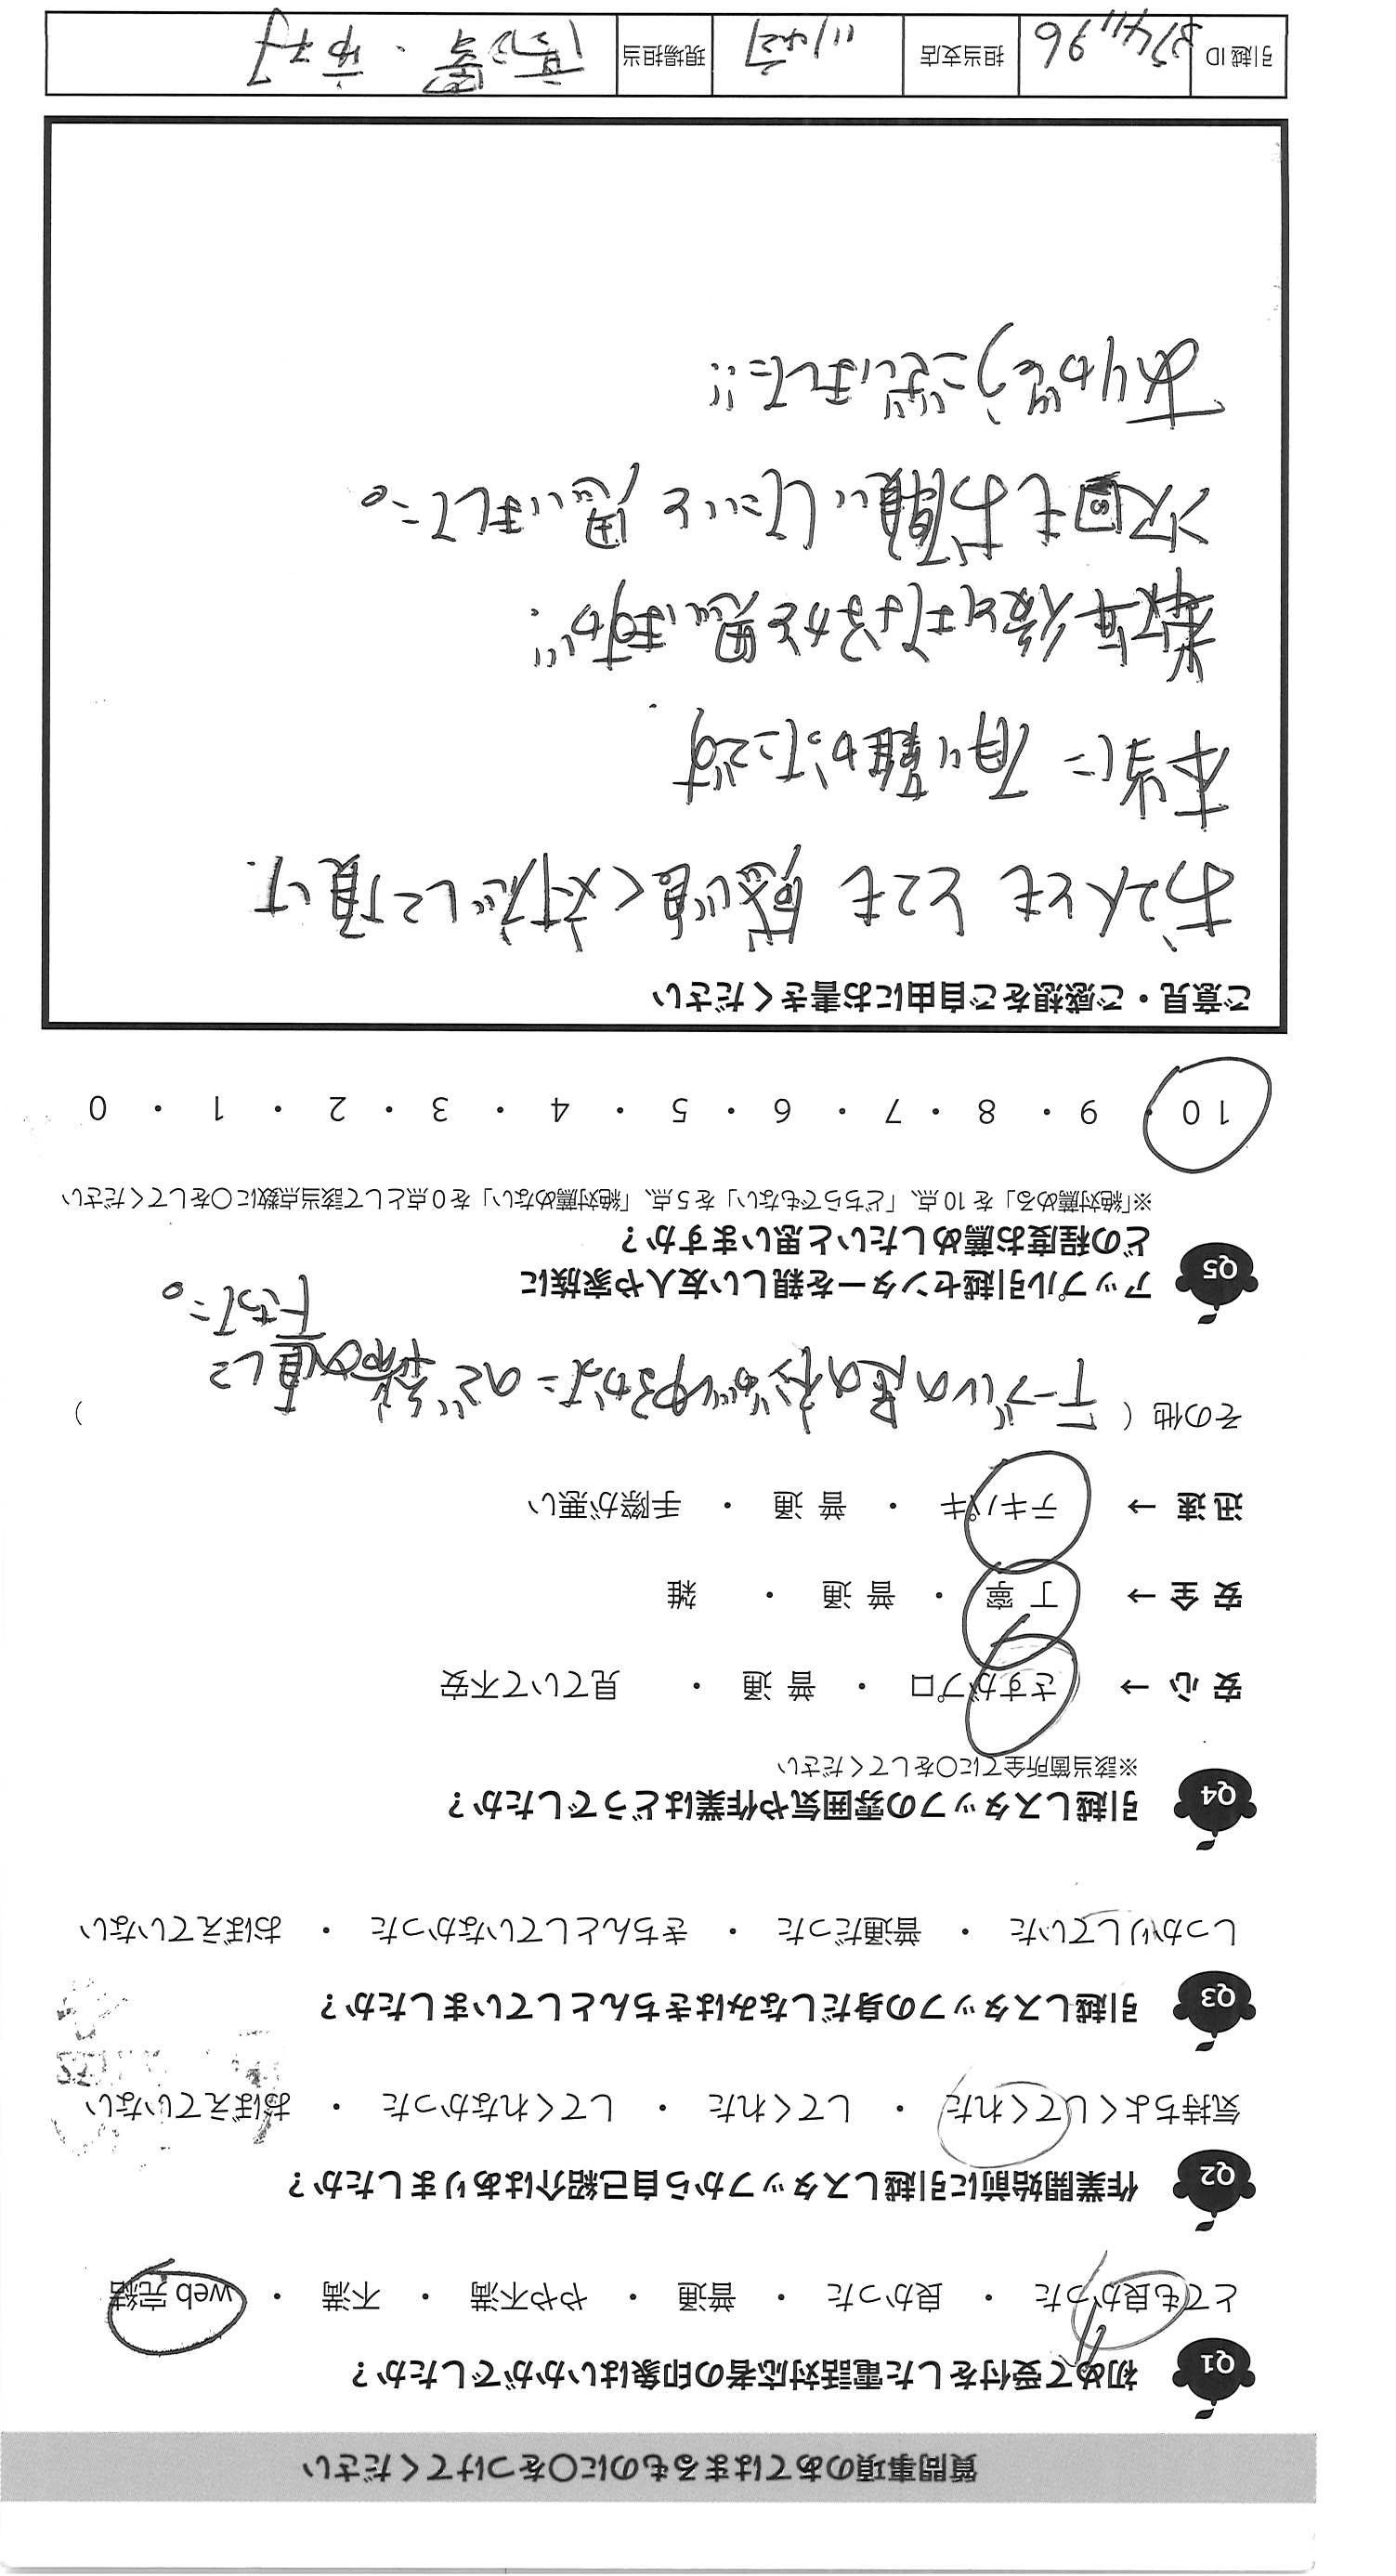 質問事項のあてはまるものに○をつけてください
Q1 初めて受付をした電話対応者の印象はいかがでしたか？
とても良かった ・ 良かった ・ 普通 ・ やや不満 ・ 不満 ・ web 完結
Q2 作業開始前に引越しスタッフから自己紹介はありましたか？
気持ちよくしてくれた ・ してくれた ・ してくれなかった ・ おぼえていない
Q3 引越しスタッフの身だしなみはきちんとしていましたか？
しっかりしていた ・ 普通だった ・ きちんとしていなかった ・ おぼえていない
Q4 引越しスタッフの雰囲気や作業はどうでしたか？
※該当箇所全てに○をしてください
安 心 → さすがプロ ・ 普 通 ・ 見ていて不安
安 全 → 丁 寧 ・ 普 通 ・ 雑
迅 速 → テキパキ ・ 普 通 ・ 手際が悪い
その他（ テーブルの足のネジがゆるかったので締め直して ）
下さった。
Q5 アップル引越センターを親しい友人や家族に
どの程度お薦めしたいと思いますか？
※「絶対薦める」を 10 点、「どちらでもない」を 5 点、「絶対薦めない」を 0 点として該当点数に○をしてください
10 ・ 9 ・ 8 ・ 7 ・ 6 ・ 5 ・ 4 ・ 3 ・ 2 ・ 1 ・ 0
ご意見・ご感想をご自由にお書きください
お2人とも とても 感じ良く対応して頂け
本当に 有り難かったです
数年後とはなるかと思いますが…
次回もお願いしたいと 思いました。
ありがとうございました!!
引越 ID 3741196 担当支店 現場担当